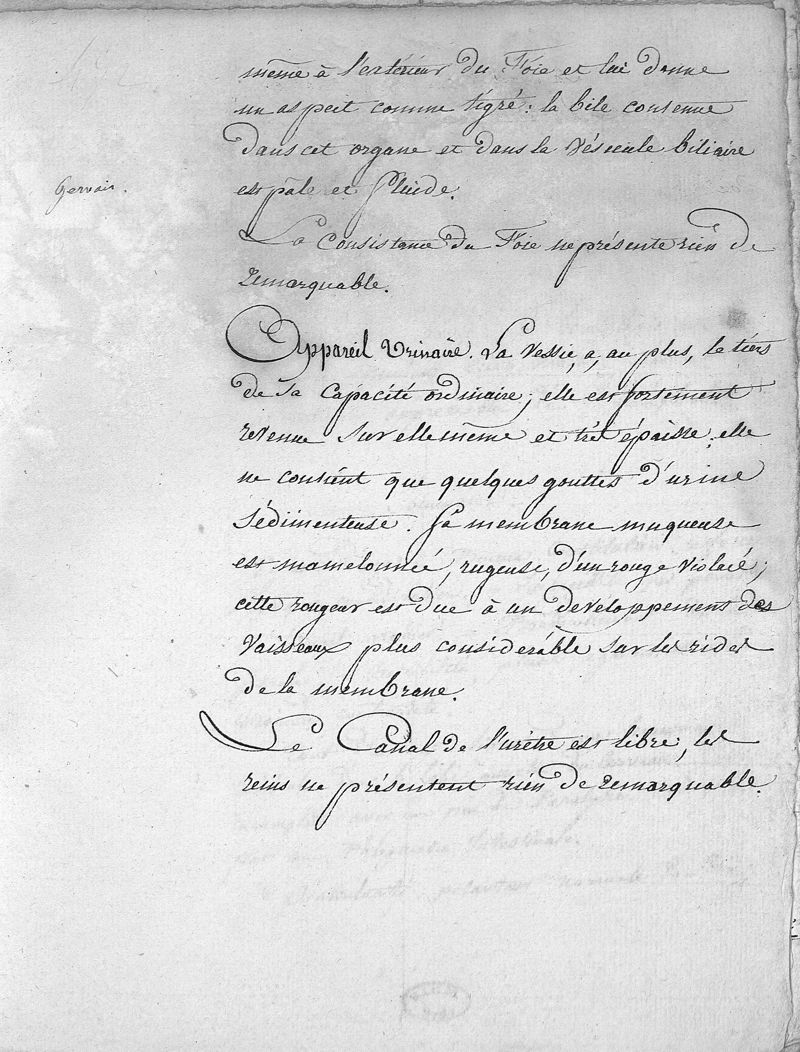 même à l'extérieur du Foie et lui donne
un aspect comme tigré : la bile contenue
dans cet organe et dans la Vésicule biliaire
Gervais.
est pâle et fluide.
La Consistance du Foie ne présente rien de
remarquable.
Appareil Urinaire. La Vessie, a, au plus, le tiers
de sa Capacité ordinaire ; elle est fortement
revenue sur elle même et très épaisse ; elle
ne contient que quelques gouttes d'urine
sédimenteuse. Sa membrane muqueuse
est mamelonnée, rugeuse, d'un rouge violacé ;
cette rougeur est due à un développement des
Vaisseaux plus considérable sur les rides
de la membrane.
Le Canal de l'urètre est libre ; les
reins ne présentent rien de remarquable.